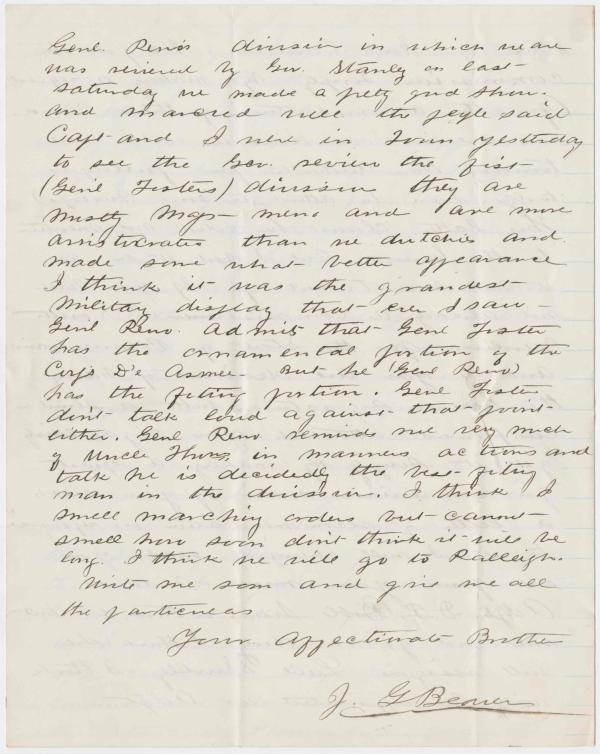 Genl. Reno's division in which we are
was reviewed by Gov. Stanley on last
saturday we made a pretty good show
and marched well the people said
Capt and I were in Town yesterday
to see the Gov. review the first
(Genl Fosters) division they are
mostly men and are more
aristocrates than we dutchies and
made some what better appearance
I think it was the grandest
Military display that ever I saw -
Genl Reno. Admits that Genl Foster
has the ornamental portion of the
Corps De Armee - But he (Genl Reno)
has the fiting portion. Genl Foster
dont talk loud against that point
either. Genl Reno reminds me very much
of Uncle Thos, in manners actions and
talk he is decidedly the best fiting
man in the division. I think I
smell marching orders but cannot
smell how soon dont think it will be
long. I think we will go to Raleigh.
Write me soon and give me all
the particulars
Your Affectionate Brother
J. G Beaver